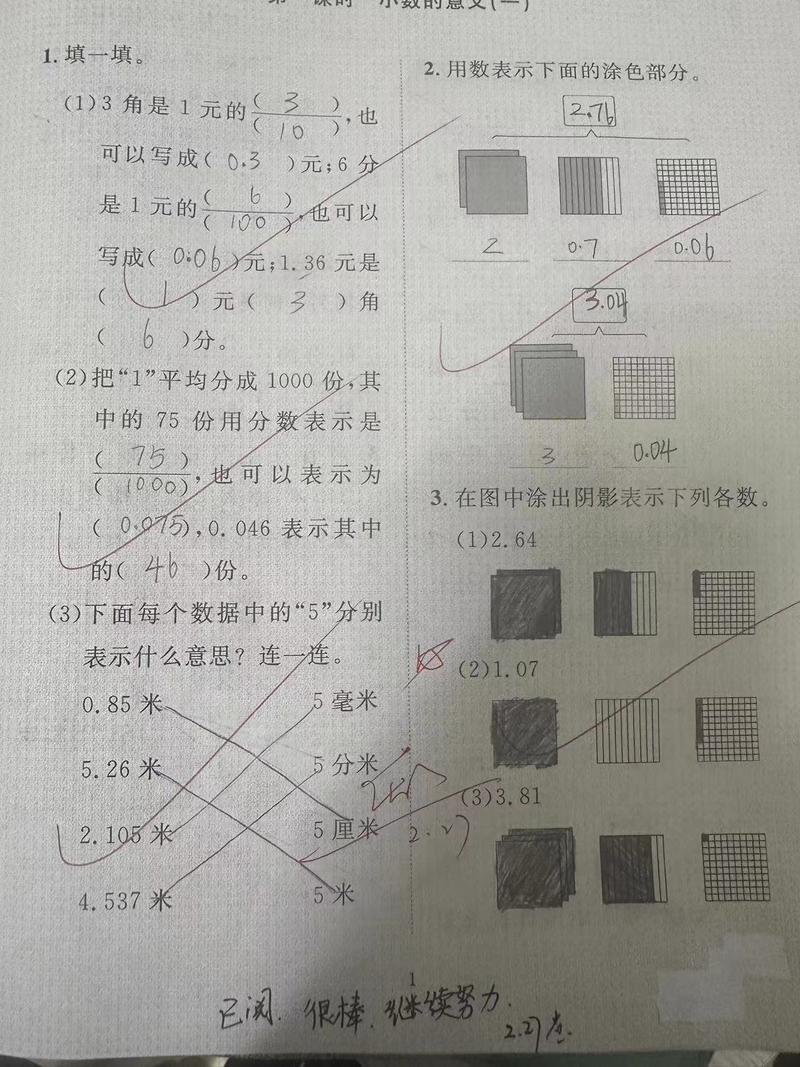 课时 小数的意义(一)
1. 填一填。
(1)3 角是 1 元的( 3 )/( 10 ),也
可以写成( 0.3 )元;6 分
是 1 元的( 6 )/( 100 ),也可以
写成( 0.06 )元;1.36 元是
( 1 )元( 3 )角
( 6 )分。
(2)把“1”平均分成 1000 份,其
中的 75 份用分数表示是
( 75 )/( 1000 ),也可以表示为
( 0.075 ),0.046 表示其中
的( 46 )份。
(3)下面每个数据中的“5”分别
表示什么意思？连一连。
0.85 米 5 毫米
5.26 米 5 分米
2.105 米 5 厘米
4.537 米 5 米
2. 用数表示下面的涂色部分。
2.76
2 0.7 0.06
3.04
3 0.04
3. 在图中涂出阴影表示下列各数。
(1)2.64
(2)1.07
(3)3.81
2.27
1
已阅. 很棒. 继续努力.
2.27